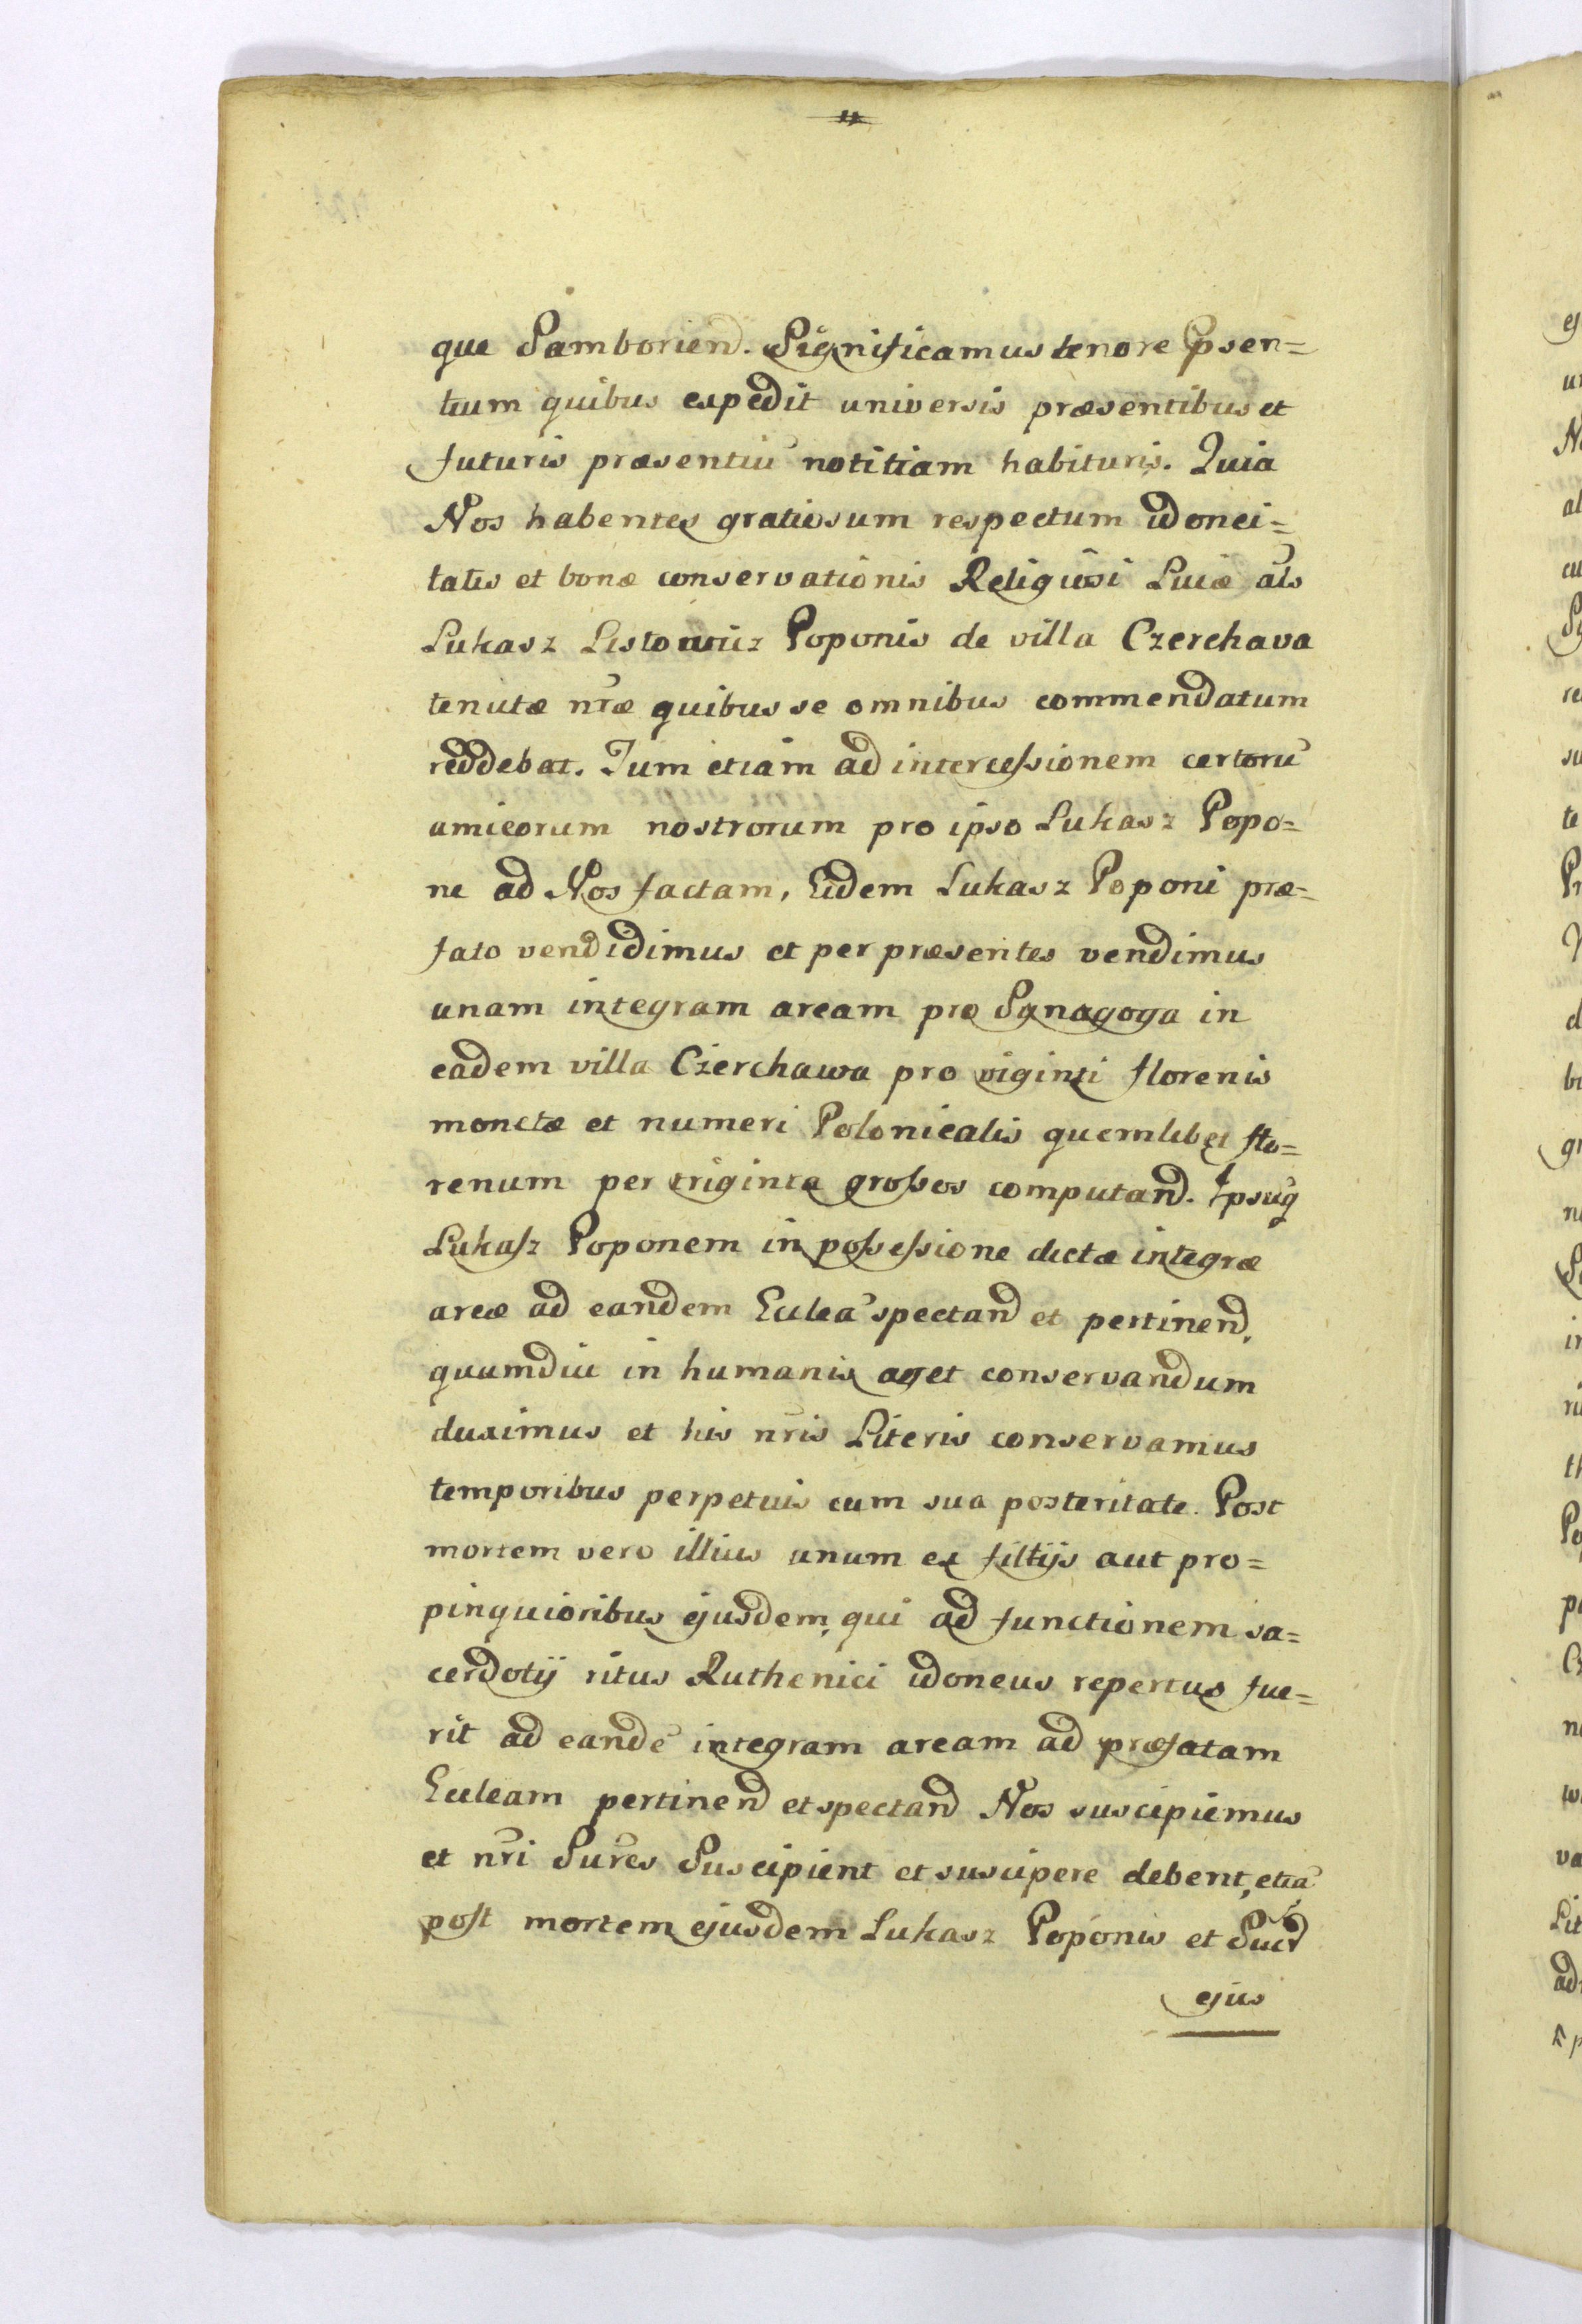 que Samborien̄. Significamus tenore Ppsen=
tium quibus expedit universis præsentibus et
futuris præsentiū notitiam habituris. Quia
Nos habentes gratiosum respectum idonei=
tatis et bonæ conservationis Religiosi Lucæ als
Lukasz Listowicz Poponis de villa Czerchava
tenutæ nr̄æ quibus se omnibus commendatum
reddebat. Tum etiam ad intercessionem certorū
amicorum nostrorum pro ipso Lukasz Popo=
ne ad Nos factam, Eidem Lukasz Poponi præ=
fato vendidimus et per præsentes vendimus
unam integram aream pro Synagoga in
eadem villa Czerchawa pro viginti florenis
monetæ et numeri Polonicalis quemlibet flo=
renum per triginta grossos computand. Ipsūq
Lukasz Poponem in possessione dictæ integræ
areæ ad eandem Ecleā spectand et pertinend,
quamdiu in humanis aget conservandum
duximus et his nr̄is Literis conservamus
temporibus perpetuis cum sua posteritate. Post
mortem vero illius unum ex filijs aut pro=
pinquioribus ejusdem, qui ad functionem sa=
cerdotij ritus Ruthenici idoneus repertus fue=
rit ad eandē integram aream ad præfatam
Ecleam pertinend et spectand Nos suscipiemus
et nr̄i Sur̄es Suscipient et suscipere debent, etiā
post mortem ejusdem Lukasz Poponis et Sucr̄
ejus